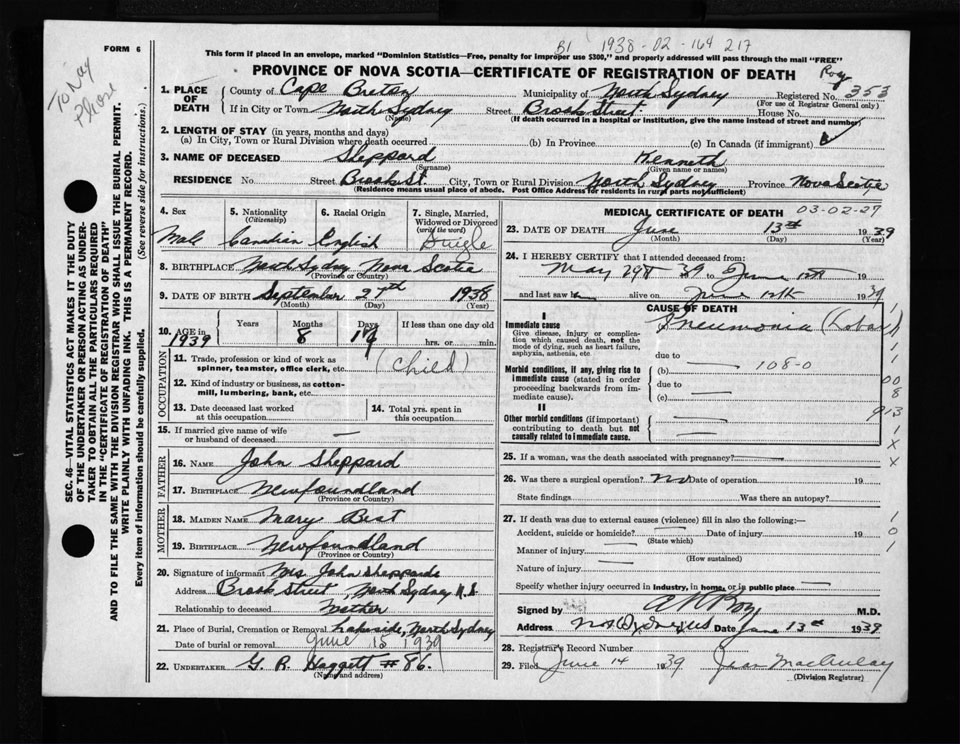 FORM 6
B1 1938-02-164 217
This form if placed in an envelope, marked "Dominion Statistics—Free, penalty for improper use $300," and properly addressed will pass through the mail "FREE"
PROVINCE OF NOVA SCOTIA—CERTIFICATE OF REGISTRATION OF DEATH
1. PLACE OF DEATH
County of Cape Breton Municipality of North Sydney Registered No. 353
(For use of Registrar General only)
If in City or Town North Sydney Street Brook Street House No.
(Name) (If death occurred in a hospital or institution, give the name instead of street and number)
2. LENGTH OF STAY (in years, months and days)
(a) In City, Town or Rural Division where death occurred (b) In Province (c) In Canada (if immigrant)
3. NAME OF DECEASED Sheppard Kenneth
(Surname) (Given name or names)
RESIDENCE No. Street Brook St. City, Town or Rural Division North Sydney Province Nova Scotia
(Residence means usual place of abode. Post Office Address for residents in rural parts not sufficient)
SEC. 46—VITAL STATISTICS ACT MAKES IT THE DUTY
OF THE UNDERTAKER OR PERSON ACTING AS UNDER-
TAKER TO OBTAIN ALL THE PARTICULARS REQUIRED
IN THE "CERTIFICATE OF REGISTRATION OF DEATH"
AND TO FILE THE SAME WITH THE DIVISION REGISTRAR WHO SHALL ISSUE THE BURIAL PERMIT.
WRITE PLAINLY WITH UNFADING INK. THIS IS A PERMANENT RECORD.
Every item of information should be carefully supplied. (See reverse side for instructions.)
4. Sex 5. Nationality (Citizenship) 6. Racial Origin 7. Single, Married, Widowed or Divorced (write the word)
Male Canadian English Single
8. BIRTHPLACE North Sydney Nova Scotia
(Province or Country)
9. DATE OF BIRTH September 27th 1938
(Month) (Day) (Year)
10. AGE IN 1939 Years Months 8 Days If less than one day old hrs. or min.
OCCUPATION
11. Trade, profession or kind of work as spinner, teamster, office clerk, etc. (child)
12. Kind of industry or business, as cotton-mill, lumbering, bank, etc.
13. Date deceased last worked at this occupation 14. Total yrs. spent in this occupation
15. If married give name of wife or husband of deceased —
FATHER
16. NAME John Sheppard
17. BIRTHPLACE Newfoundland
(Province or Country)
MOTHER
18. MAIDEN NAME Mary Best
19. BIRTHPLACE Newfoundland
(Province or Country)
20. Signature of informant Mrs John Sheppard
Address Brook Street, North Sydney N.S.
Relationship to deceased Mother
21. Place of Burial, Cremation or Removal Lakeside, North Sydney
Date of burial or removal June 15 1939
22. UNDERTAKER G. R. Haggett #86.
(Name and address)
MEDICAL CERTIFICATE OF DEATH 03-02-27
23. DATE OF DEATH June 13th 1939
(Month) (Day) (Year)
24. I HEREBY CERTIFY that I attended deceased from:
May 29th 39 to June 12th 19
and last saw alive on June 12th 1939
CAUSE OF DEATH
I
Immediate cause
Give disease, injury or complication which caused death, not the mode of dying, such as heart failure, asphyxia, asthenia, etc.
Pneumonia (Lobar)
due to
Morbid conditions, if any, giving rise to immediate cause (stated in order proceeding backwards from immediate cause).
(b) 108-0
due to
(c)
II
Other morbid conditions (if important) contributing to death but not causally related to immediate cause.
25. If a woman, was the death associated with pregnancy?
26. Was there a surgical operation? No Date of operation 19
State findings Was there an autopsy?
27. If death was due to external causes (violence) fill in also the following:—
Accident, suicide or homicide? Date of injury 19
(State which)
Manner of injury
(How sustained)
Nature of injury
Specify whether injury occurred in industry, in home, or in public place
Signed by M.D.
Address Date June 13th 1939
28. Registrar's Record Number
29. Filed June 14 1939 Jean MacAulay
(Division Registrar)